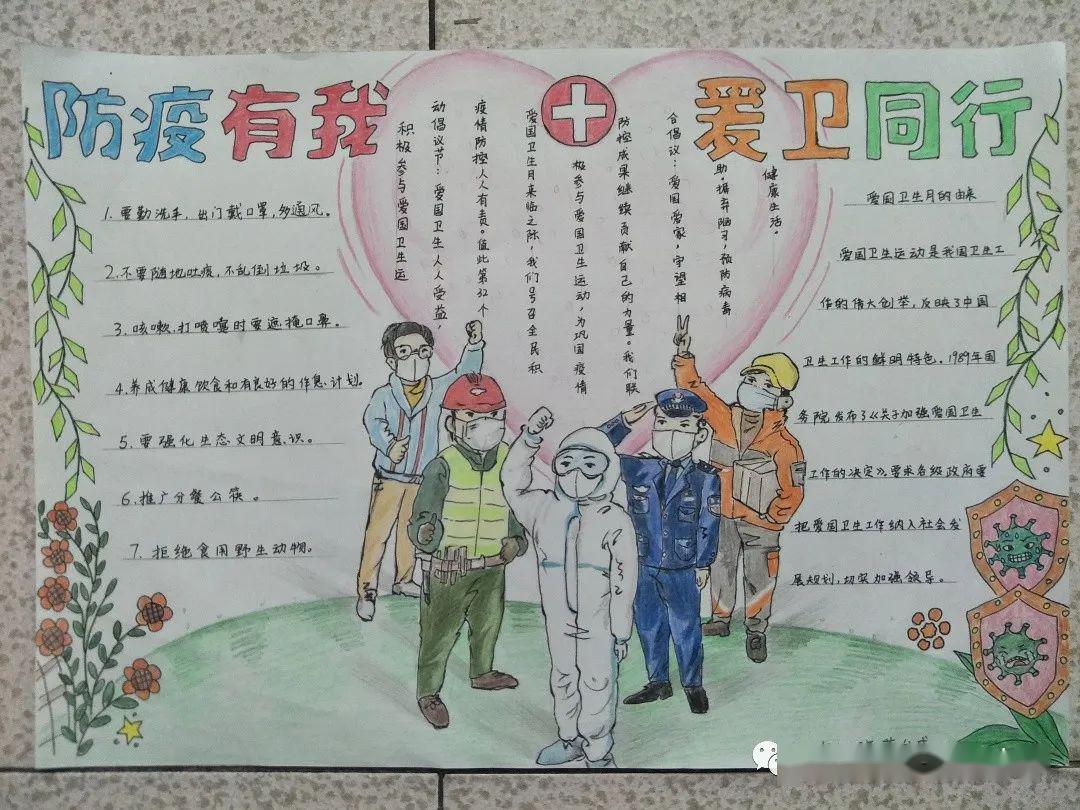 防疫有我
爱卫同行
1.要勤洗手，出门戴口罩，多通风。
2.不要随地吐痰，不乱倒垃圾。
3.咳嗽、打喷嚏时要遮掩口鼻。
4.养成健康饮食和有良好的作息计划。
5.要强化生态文明意识。
6.推广分餐公筷。
7.拒绝食用野生动物。
积极参与爱国卫生运
动倡议节：爱国卫生人人受益，
疫情防控人人有责。值此第32个
爱国卫生月来临之际，我们号召全民积
极参与爱国卫生运动，为巩固疫情
防控成果继续贡献自己的力量。我们联
合倡议：爱国爱家，守望相
助。摒弃陋习，预防病毒
健康生活。
爱国卫生月的由来
爱国卫生运动是我国卫生工
作的伟大创举，反映了中国
卫生工作的鲜明特色。1989年国
务院发布了《关于加强爱国卫生
工作的决定》，要求各级政府要
把爱国卫生工作纳入社会发
展规划，切实加强领导。